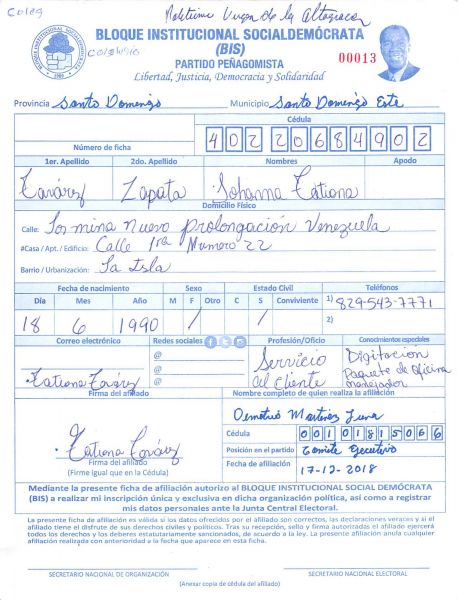 Colag
Maletime Virgen de la Altagracia
BLOQUE INSTITUCIONAL SOCIALDEMÓCRATA
(BIS)
PARTIDO PEÑAGOMISTA
Libertad, Justicia, Democracia y Solidaridad
00013
Provincia Santo Domingo Municipio Santo Domingo Este
Cédula
Número de ficha 40220684902
1er. Apellido 2do. Apellido Nombres Apodo
Tavárez Zapata Johanna Tatiana
Domicilio Físico
Calle: Los mina nuevo prolongación Venezuela
#Casa / Apt. / Edificio: Calle 1ra Numero 22
Barrio / Urbanización: La Isla
Fecha de nacimiento Sexo Estado Civil Teléfonos
Día Mes Año M F Otro C S Conviviente 1) 829-543-7771
18 6 1990 / / 2)
Correo electrónico Redes sociales Profesión/Oficio Conocimientos especiales
@
@
@
Servicio al cliente
Digitación
Paquete de oficina
manejador
Tatiana Tavárez
Firma del afiliado Nombre completo de quien realiza la afiliación
Demetrio Martinez Luna
Cédula 00101815066
Posición en el partido Comite Ejecutivo
Fecha de afiliación 17-12-2018
Tatiana Tavárez
Firma del afiliado
(Firme igual que en la Cédula)
Mediante la presente ficha de afiliación autorizo al BLOQUE INSTITUCIONAL SOCIAL DEMÓCRATA
(BIS) a realizar mi inscripción única y exclusiva en dicha organización política, así como a registrar
mis datos personales ante la Junta Central Electoral.
La presente ficha de afiliación es válida si los datos ofrecidos por el afiliado son correctos, las declaraciones veraces y si el
afiliado tiene el disfrute de sus derechos civiles y políticos. Tras su recepción, sello y firma autorizadas el afiliado ejercerá
todos los derechos y los deberes estatutariamente sancionados, de acuerdo a la ley. La presente afiliación anula cualquier
afiliación realizada con anterioridad a la fecha que aparece en esta ficha.
SECRETARIO NACIONAL DE ORGANIZACIÓN SECRETARIO NACIONAL ELECTORAL
(Anexar copia de cédula del afiliado)